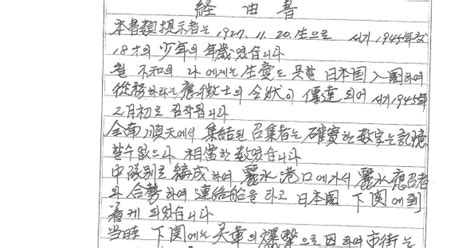 経由書
本書類 提示者는 1927. 11. 20. 生으로 서기 1945年 現
18才의 少年의 年歲였습니다
의 나에게는 生覺도 못할 日本国 入國하여
從務하라는 應徵士의 令狀이 傳達되어 서기 1945年
2月初로 召集됩니다
全南 順天에서 集結된 召集者는 確實한 数字는 記憶
할수 없으나 相當한 数였습니다
中隊別로 編成하여 麗水港口에가서 麗水 應召者
와 合勢하여 連絡船을 타고 日本国 下関에 到
着케 되었습니다
当時 下関에는 爆撃으로 因하여 市街는